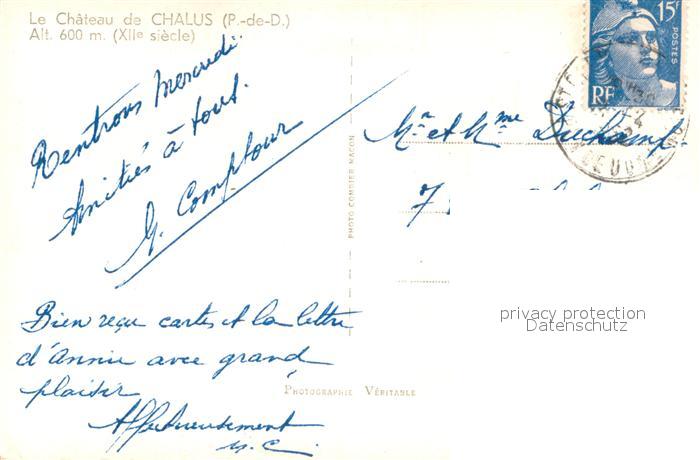 Le Château de CHALUS (P.-de-D.)
Alt. 600 m. (XIIe siècle)
Rentrons Mercredi.
Amitiés à tous.
G. Comptour
Bien reçu cartes et la lettre
d'Annie avec grand
plaisir
Affectueusement
PHOTO COMBIER MACON
PHOTOGRAPHIE VÉRITABLE
15F
POSTES
RF
Mr et Mme Duchamp
7
privacy protection
Datenschutz